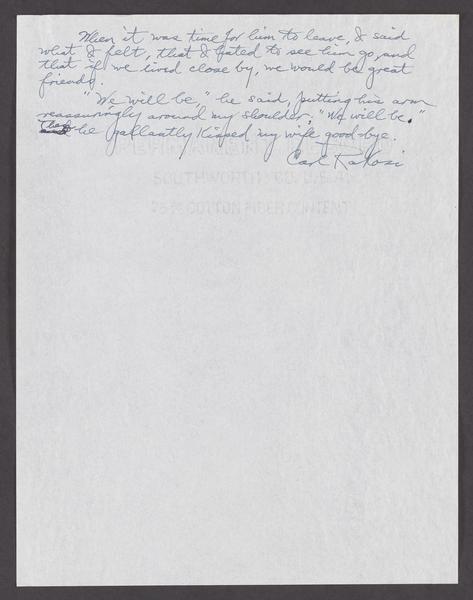 When it was time for him to leave, I said
what I felt, that I hated to see him go, and
that if we lived close by, we would be great
friends.
"We will be," he said, putting his arm
reassuringly around my shoulder, "We will be."
Then he gallantly kissed my wife good-bye.
Carl Rakosi
SOUTHWORTH CO. U.S.A.
25% COTTON FIBER CONTENT